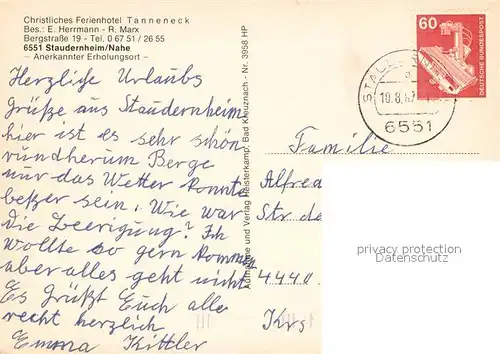 Christliches Ferienhotel Tanneneck
Bes.: E. Herrmann - R. Marx
Bergstraße 19 - Tel. 0 67 51 / 26 55
6551 Staudernheim/Nahe
– Anerkannter Erholungsort –
Herzliche Urlaubs
grüße aus Staudernheim
hier ist es sehr schön
rundherum Berge
nur das Wetter konnte
beßer sein. Wie war
die Beerigung? Ich
wollte so gern kommen
aber alles geht nicht
Es Grüßt Euch alle
recht herzlich
Emma Kittler
Aufnahme und Verlag Heisterkamp, Bad Kreuznach - Nr. 3958 HP
60
DEUTSCHE BUNDESPOST
6551
Familie
Alfred
Str de
4440
Krs
privacy protection
Datenschutz